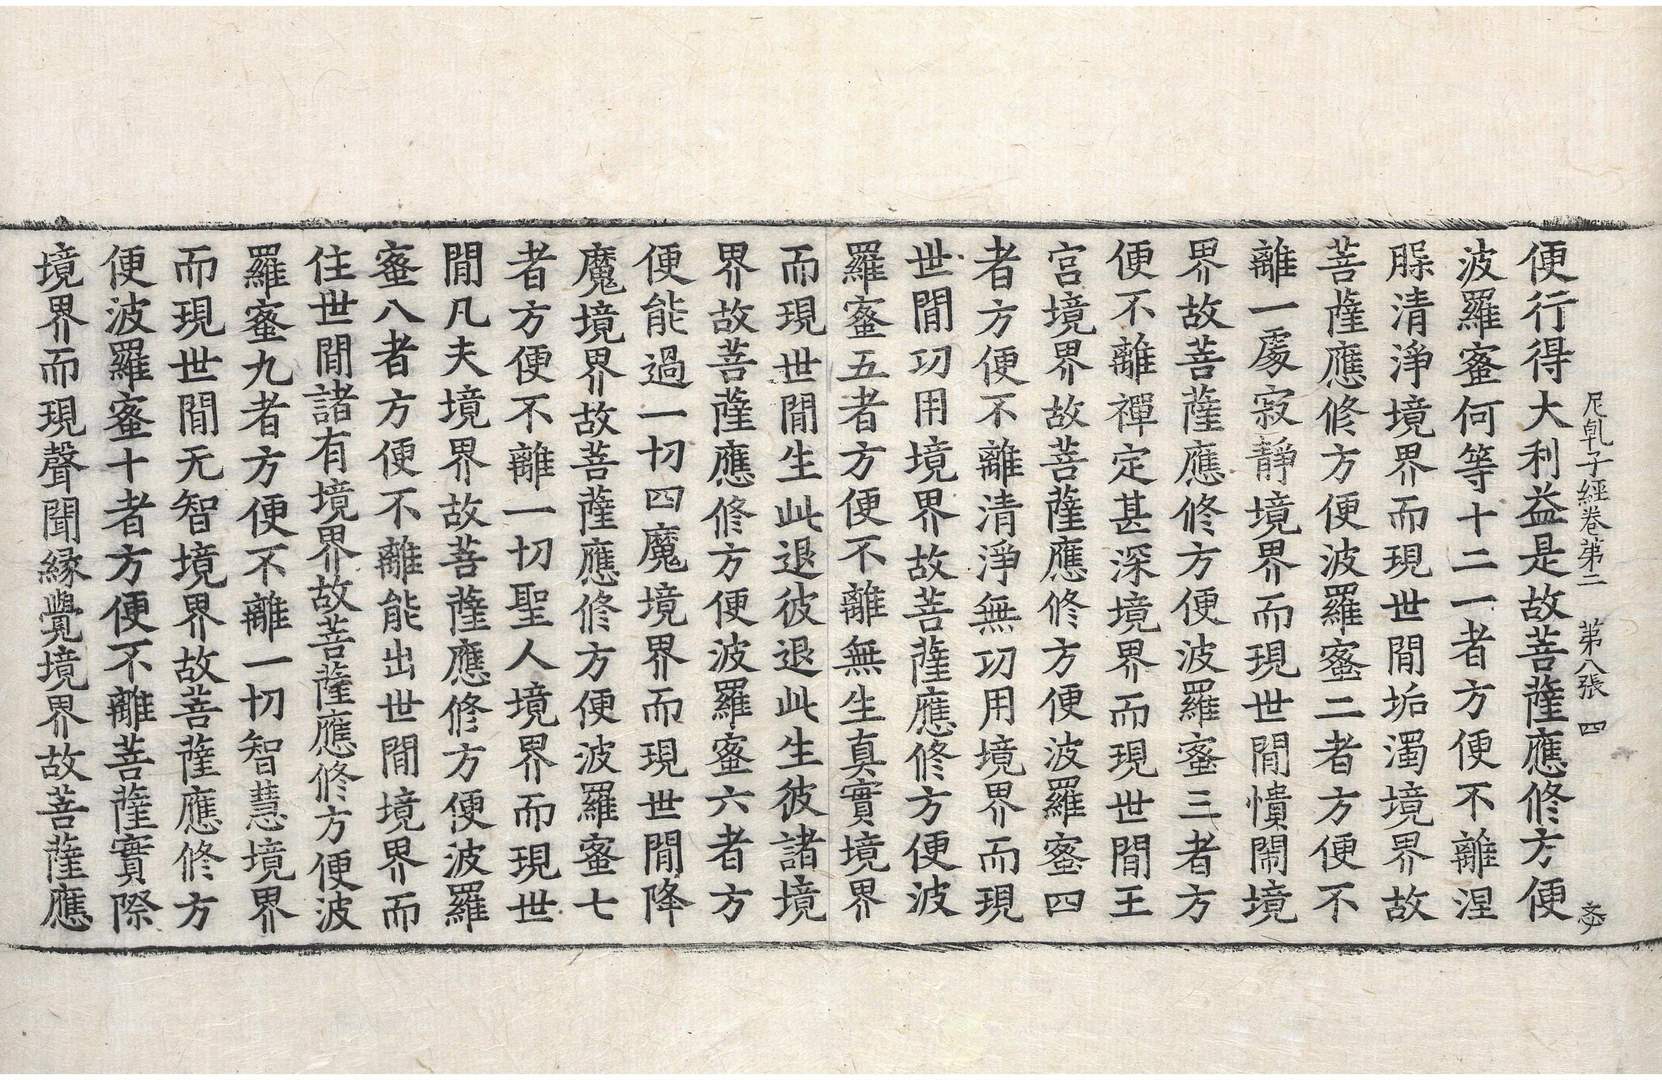 尼乹子經卷第二　第八張　四
便行得大利益是故菩薩應修方便
波羅蜜何等十二一者方便不離涅
脲清淨境界而現世閒垢濁境界故
菩薩應修方便波羅蜜二者方便不
離一處寂靜境界而現世閒憒閙境
界故菩薩應修方便波羅蜜三者方
便不離禪定甚深境界而現世閒王
宫境界故菩薩應修方便波羅蜜四
者方便不離清淨無功用境界而現
世閒功用境界故菩薩應修方便波
羅蜜五者方便不離無生真實境界
而現世閒生此退彼退此生彼諸境
界故菩薩應修方便波羅蜜六者方
便能過一切四魔境界而現世閒降
魔境界故菩薩應修方便波羅蜜七
者方便不離一切聖人境界而現世
閒凡夫境界故菩薩應修方便波羅
蜜八者方便不離能出世閒境界而
住世閒諸有境界故菩薩應修方便波
羅蜜九者方便不離一切智慧境界
而現世閒无智境界故菩薩應修方
便波羅蜜十者方便不離菩薩實際
境界而現聲聞緣覺境界故菩薩應